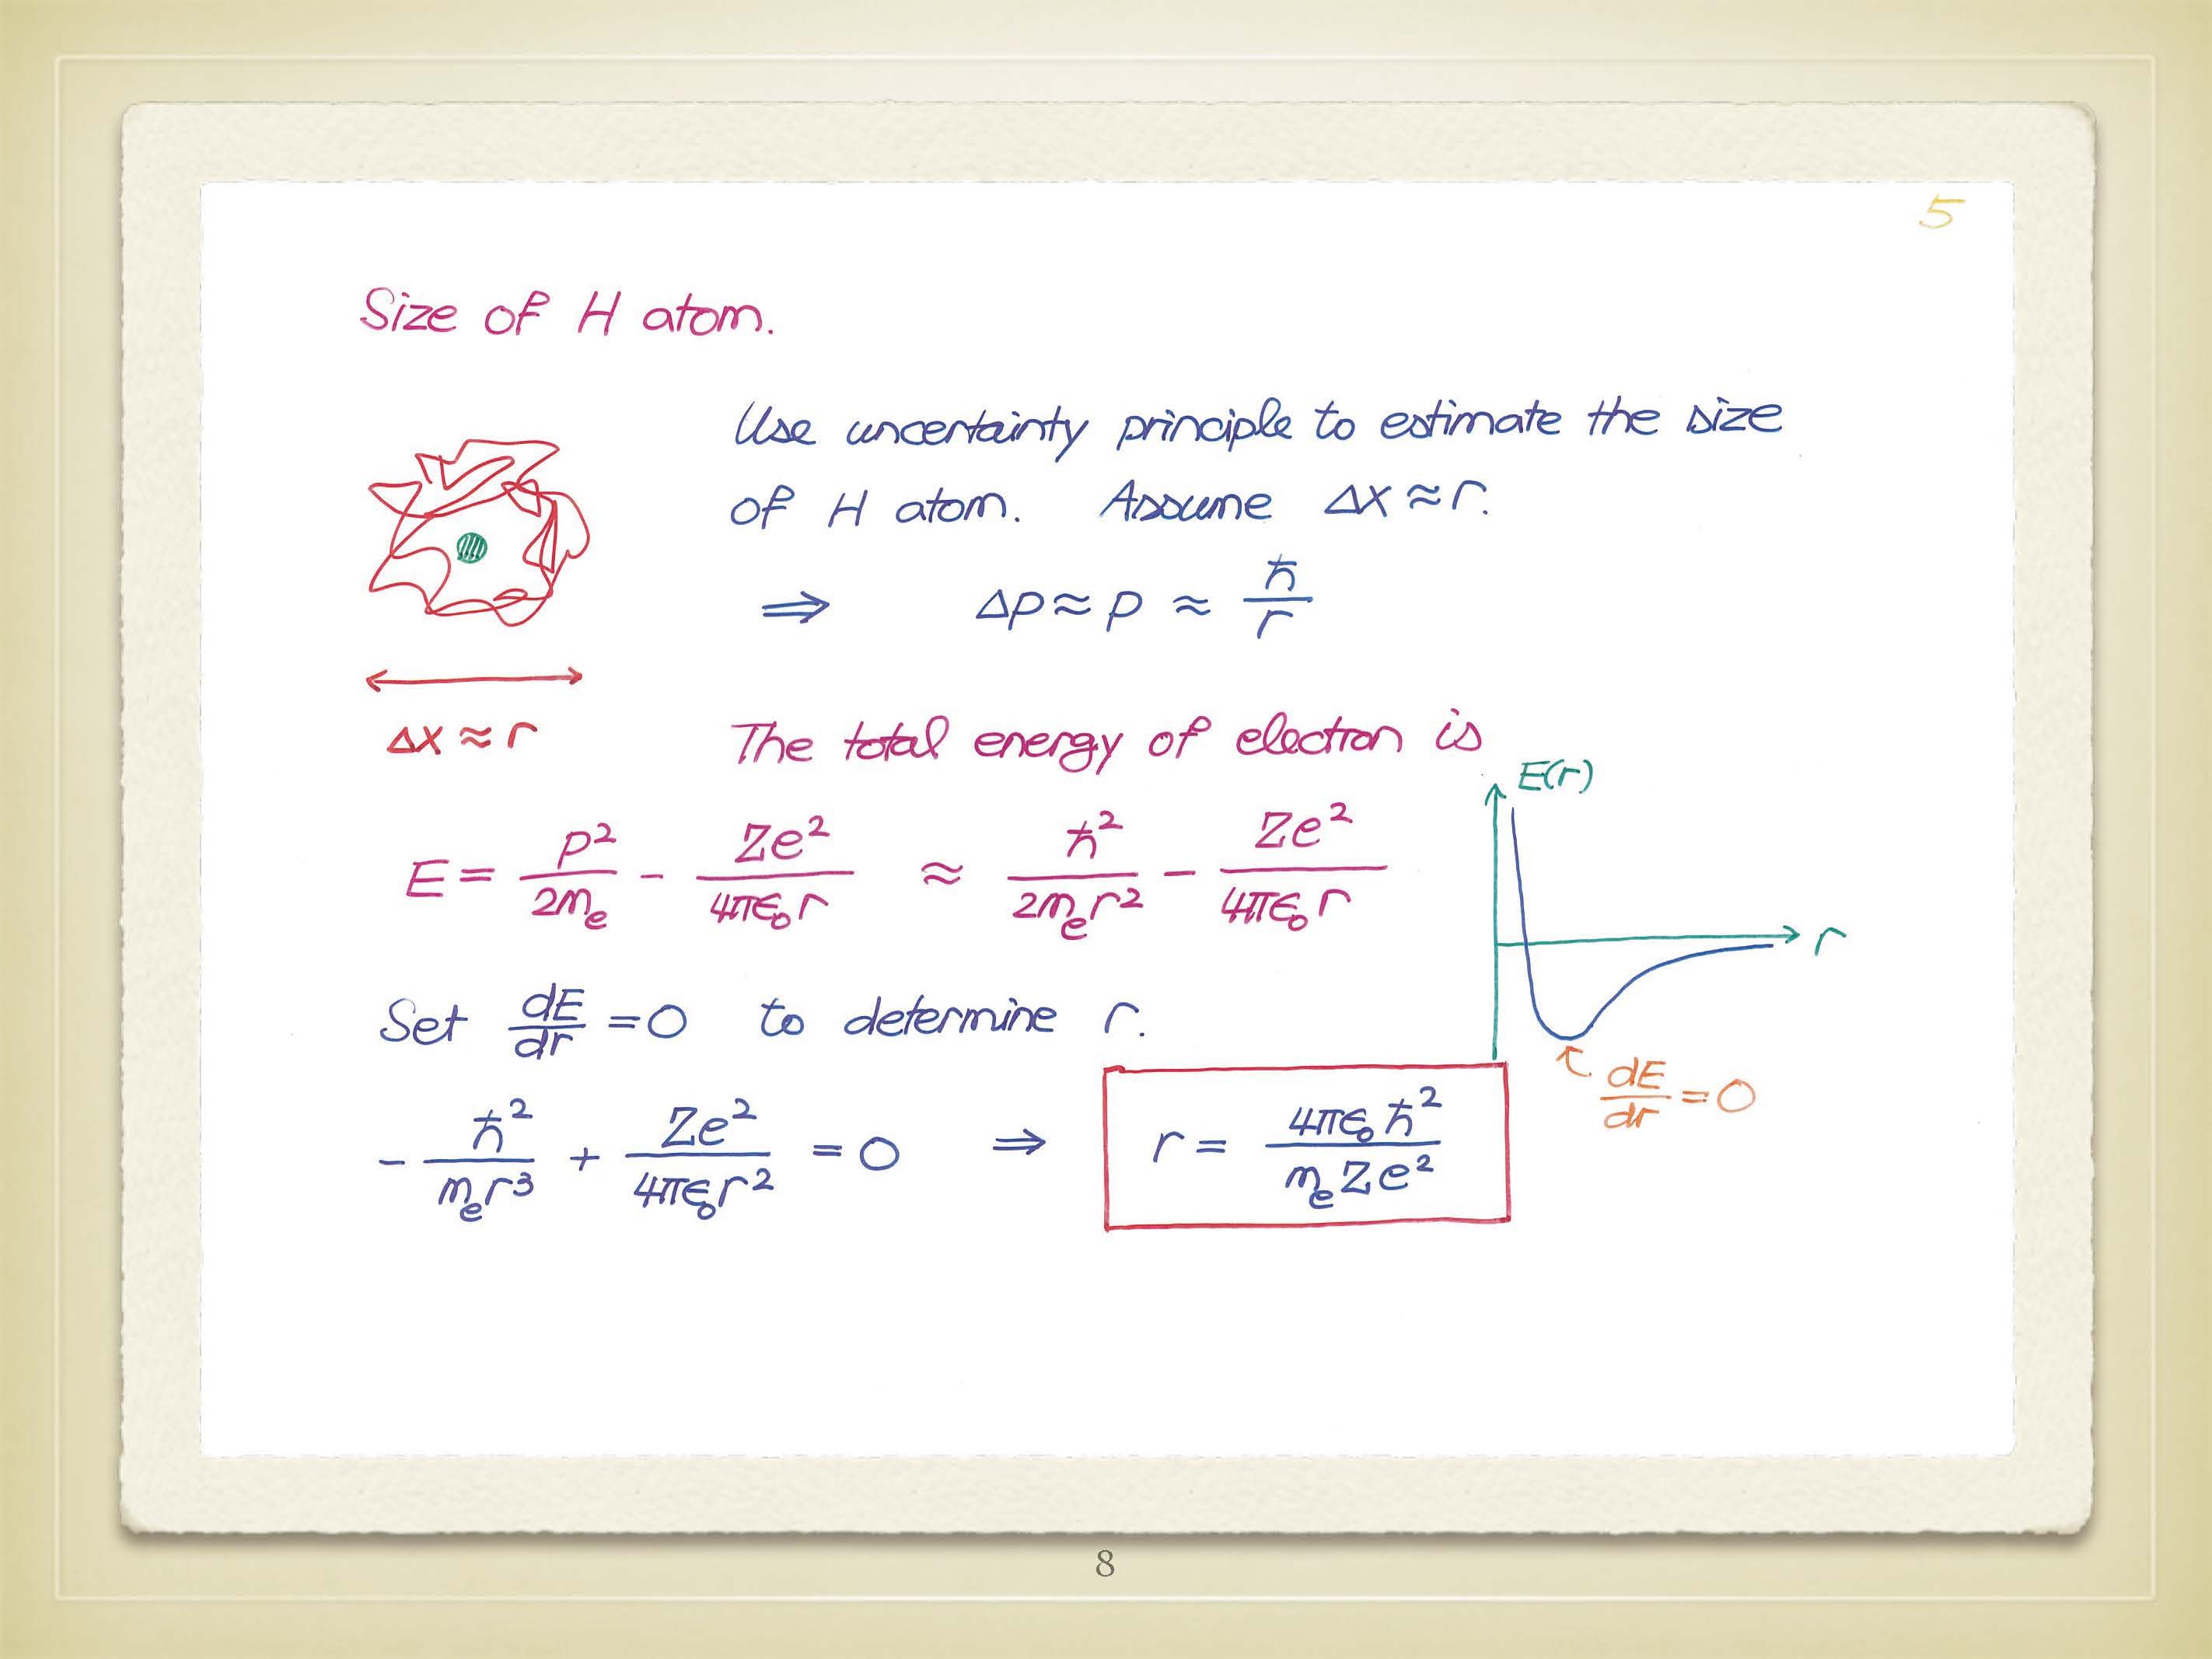 5
Size of H atom.
Use uncertainty principle to estimate the size
of H atom. Assume Δx ≈ r.
⇒ Δp ≈ p ≈ ħ/r
Δx ≈ r
The total energy of electron is
E(r)
E = p²/2mₑ - Ze²/4πε₀r ≈ ħ²/2mₑr² - Ze²/4πε₀r
r
Set dE/dr = 0 to determine r.
dE/dr = 0
- ħ²/mₑr³ + Ze²/4πε₀r² = 0 ⇒ r = 4πε₀ħ²/mₑZe²
8